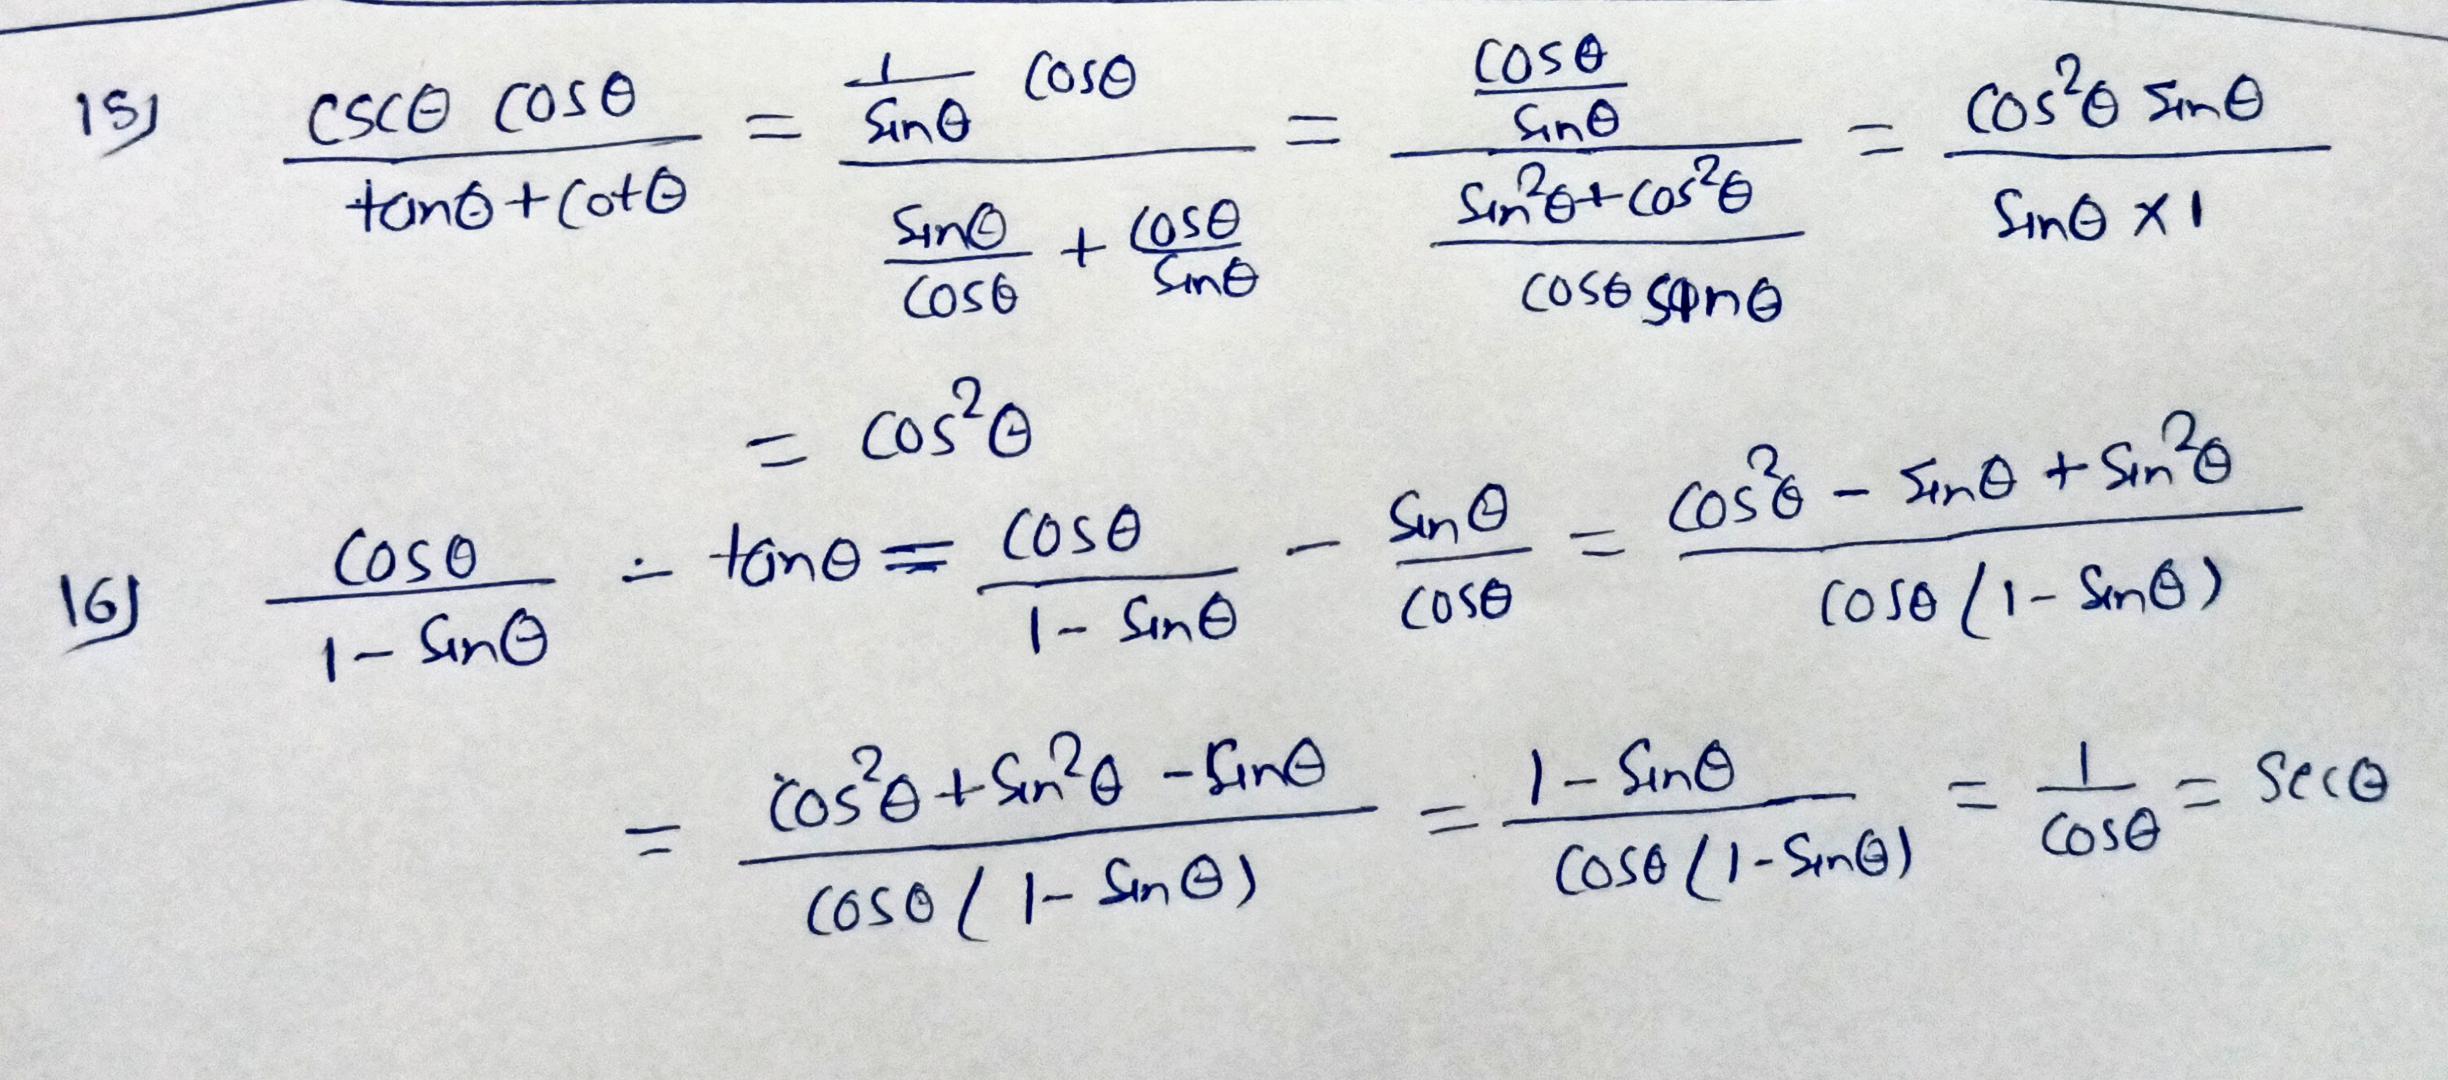 15) cscθ cosθ / tanθ + cotθ = 1/sinθ cosθ / sinθ/cosθ + cosθ/sinθ = cosθ/sinθ / sin²θ + cos²θ / cosθ sinθ = cos²θ sinθ / sinθ × 1
= cos²θ
16) cosθ / 1 - sinθ - tanθ = cosθ / 1 - sinθ - sinθ / cosθ = cos²θ - sinθ + sin²θ / cosθ (1 - sinθ)
= cos²θ + sin²θ - sinθ / cosθ (1 - sinθ) = 1 - sinθ / cosθ (1 - sinθ) = 1 / cosθ = secθ